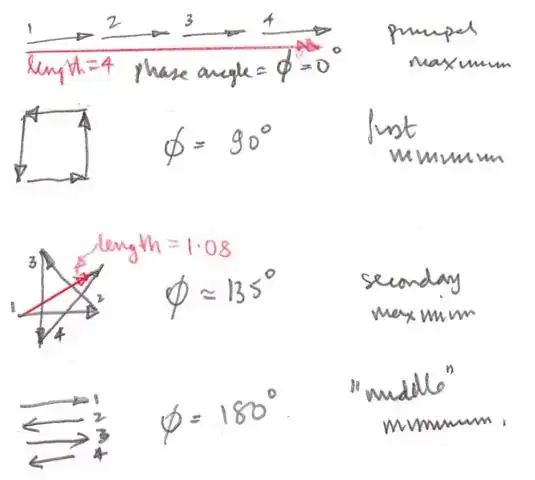 1 2 3 4
principal
maximum
length=4 phase angle = ϕ = 0°
ϕ = 90°
first
minimum
length = 1.08
3
1 2
4
ϕ ≈ 135°
secondary
maximum
1
2
3
4
ϕ = 180°
"middle"
minimum.